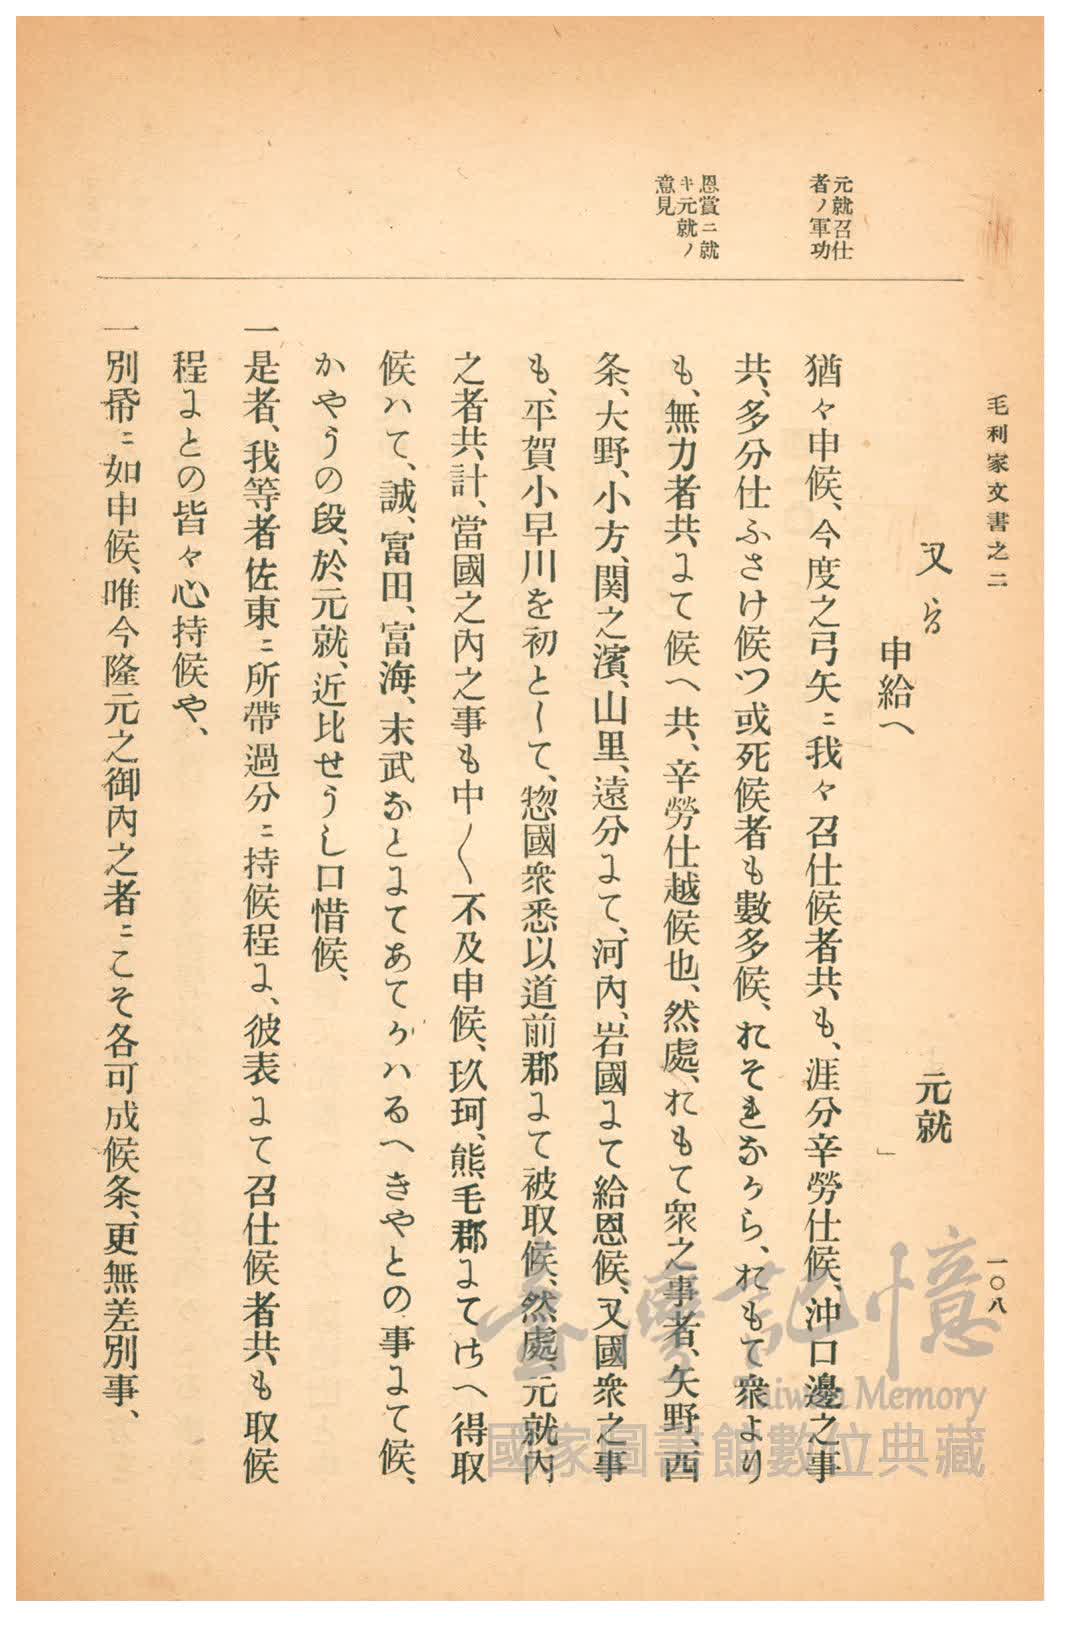 毛利家文書之二
一〇八
元就召仕
者ノ軍功
恩賞ニ就
キ元就ノ
意見
又
元就
申給へ
」
猶々申候、今度之弓矢ニ我々召仕候者共も、涯分辛勞仕候、沖口邊之事
共、多分仕ふさけ候つ或死候者も數多候、れそれなから、れもて衆より
も、無力者共にて候へ共、辛勞仕越候也、然處、れもて衆之事者、矢野、西
条、大野、小方、関之濱、山里、遠分にて、河内、岩國にて給恩候、又國衆之事
も、平賀、小早川を初として、惣國衆悉以道前郡にて被取候、然處、元就内
之者共計、當國之内之事も中〱不及申候、玖珂、熊毛郡にてさへ得取
候ハて、誠、富田、富海、末武なとにてあてかハるへきやとの事にて候、
かやうの段、於元就、近比せうし口惜候、
一是者、我等者佐東ニ所帶過分ニ持候程に、彼表にて召仕候者共も取候
程にとの皆々心持候や、
一別帋ニ如申候、唯今隆元之御内之者ニこそ各可成候条、更無差別事、
臺灣記憶
Taiwan Memory
國家圖書館數位典藏